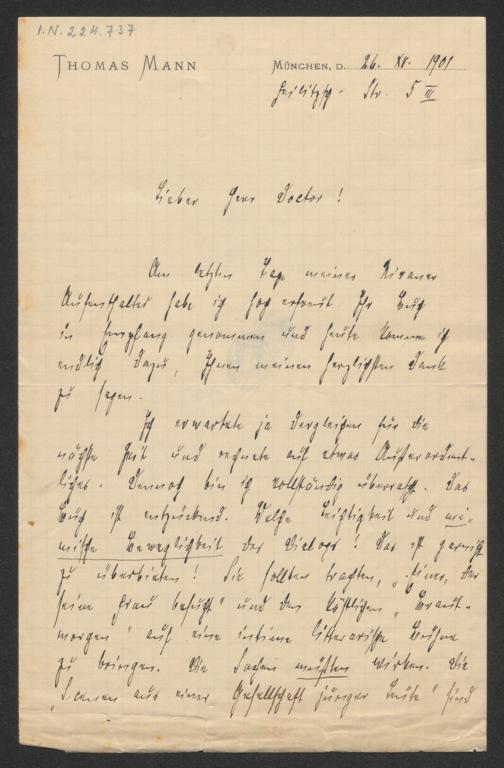 I.N. 224.737
THOMAS MANN
MÜNCHEN, D. 26. XII. 1901
Feilitzsch - Str. 5 III
Lieber Herr Doctor!
Am letzten Tage meines Rivaner
Aufenthaltes habe ich hoch erfreut Ihr Buch
in Empfang genommen und heute komme ich
endlich dazu, Ihnen meinen herzlichsten Dank
zu sagen.
Ich erwartete ja dergleichen für die
nächste Zeit und rechnete auf etwas Außerordent-
liches. Dennoch bin ich vollständig überrascht. Das
Buch ist entzückend. Welche Leichtigkeit und mi-
mische Beweglichkeit des Dialogs! Das ist garnicht
zu überbieten! Sie sollten trachten, „Einer, der
seine Frau besucht" und den köstlichen „Braut-
morgen" auf eine intime litterarische Bühne
zu bringen. Die Sachen müßten wirken. Die
„Scenen aus einer Gesellschaft junger Leute" sind